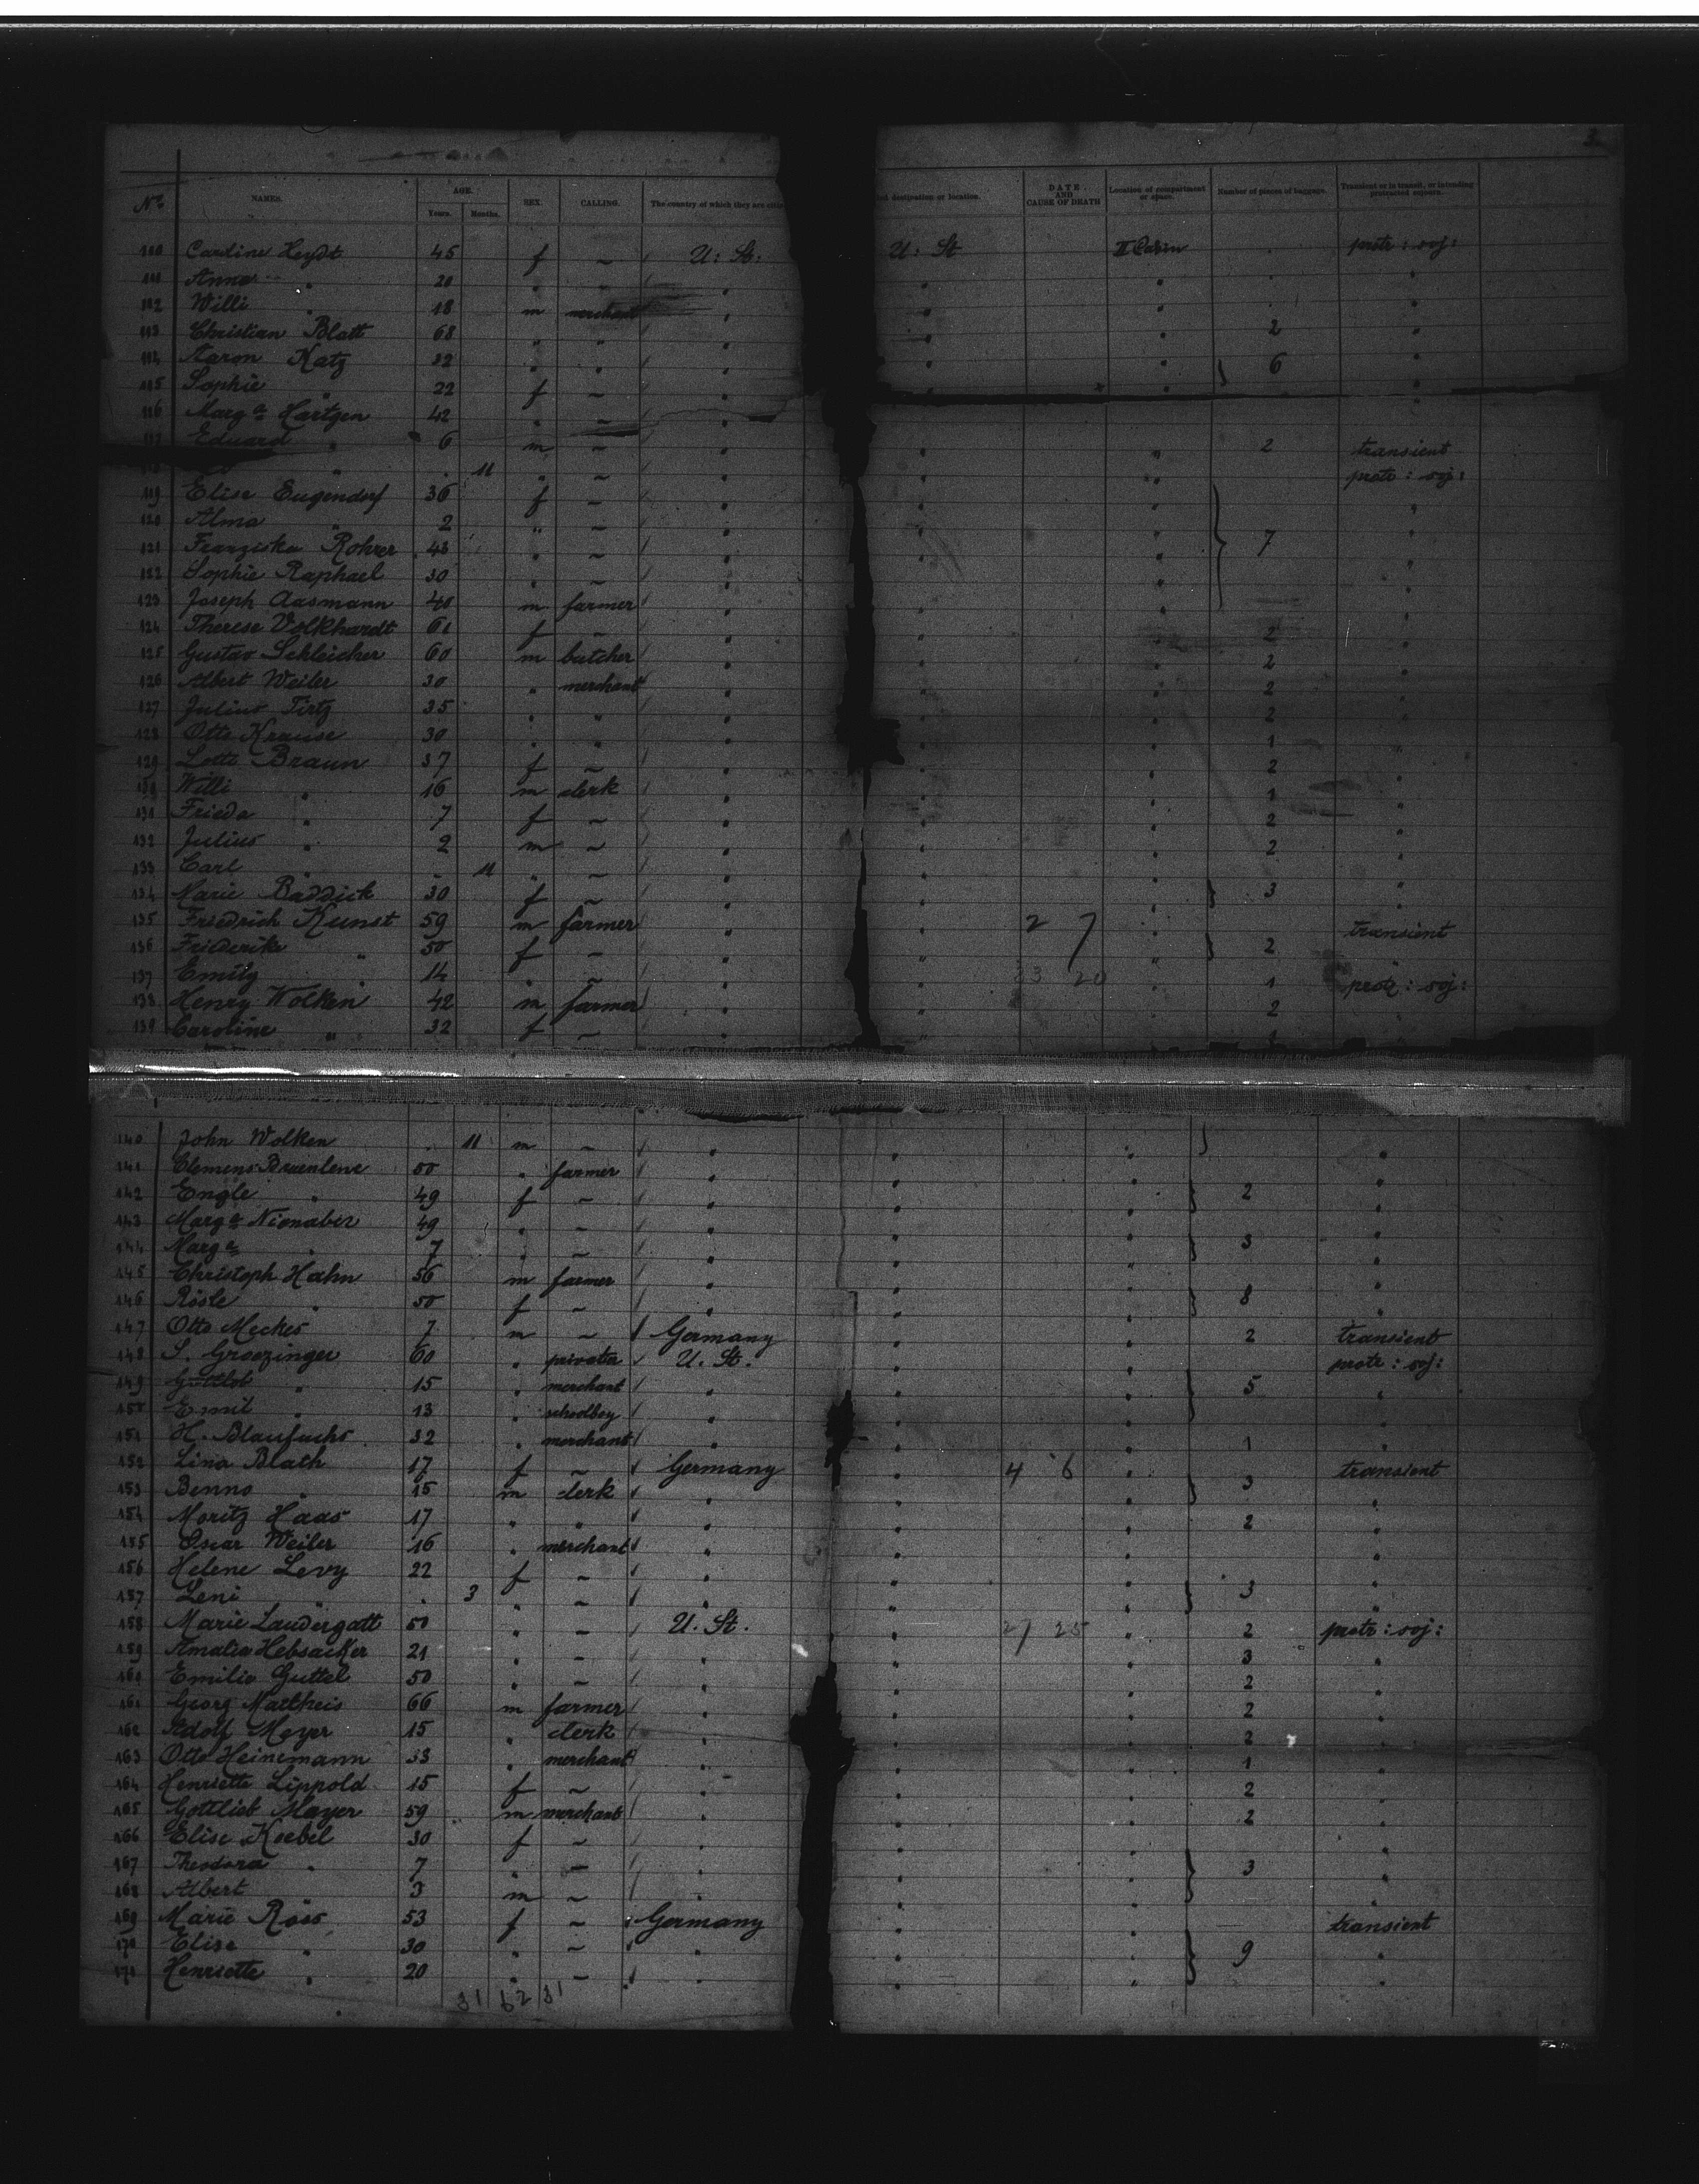 No. NAMES. AGE. Years. Months. SEX. CALLING. The country of which they are citiz d destination or location. DATE AND CAUSE OF DEATH Location of compartment or space. Number of pieces of baggage. Transient or in transit, or intending protracted sojourn.
110 Caroline Heydt 45 f ~ U: St: U: St II Cabin protr: soj:
111 Anna " 20 " ~ " " " "
112 Willi " 18 m merchant " " " "
113 Christian Blatt 68 " " " " " 2 "
114 Aaron Katz 32 " " " " " } 6 "
115 Sophie " 22 f ~ " " " "
116 Marga Hartgen 42 " ~ " "
117 Eduard " 6 m ~ " " " 2 transient
" 11 " ~ " " " protr: soj:
119 Elise Eugendorf 36 f ~ " " " "
120 Alma " 2 " ~ " " " "
121 Franziska Rohrer 43 " ~ " " " } 7 "
122 Sophie Raphael 30 " ~ " " " "
123 Joseph Aasmann 40 m farmer " " " "
124 Therese Volkhardt 61 f ~ " " " 2 "
125 Gustav Schleicher 60 m butcher " " " 2 "
126 Albert Weiler 30 " merchant " " " 2 "
127 Julius Tirtz 35 " " " " " 2 "
128 Otto Krause 30 " " " " " 1 "
129 Lotte Braun 37 f ~ " " " 2 "
130 Willi " 16 m clerk " " " 1 "
131 Frieda " 7 f ~ " " " 2 "
132 Julius " 2 m ~ " " " 2 "
133 Carl " 11 " ~ " " "
134 Marie Baddick 30 f ~ " " " } 3 "
135 Friedrich Kunst 59 m farmer " " 2 7 " transient
136 Friederike " 50 f ~ " " " } 2
137 Emily " 14 " ~ " " 23 20 " 1 protr: soj:
138 Henry Wolken 42 m farmer " " " 2 "
139 Caroline " 32 f ~ " "
140 John Wolken 11 m ~ " " " "
141 Clemens 50 " farmer " " " "
142 Engle " 49 f ~ " " " } 2 "
143 Marga Nionaber 49 " ~ " " " "
144 Marga " 7 " ~ " " " } 3 "
145 Christoph Hahn 56 m farmer " " " "
146 Rösle " 50 f ~ " " " } 8 "
147 Otto Meches 7 m ~ Germany " " 2 transient
148 S. Groezinger 60 " privatier U. St. " " protr: soj:
149 Gottlob " 15 " merchant " " " } 5 "
150 Emil " 13 " schoolboy " " "
151 H. Blaufuchs 32 " merchant " " " 1 "
152 Lina Blath 17 f ~ Germany " 4 6 " transient
153 Benno " 15 m clerk " " " } 3 "
154 Moritz Haas 17 " " " " " 2 "
155 Oscar Weiler 16 " merchant " " " "
156 Helene Levy 22 f ~ " " " "
157 Leni " 3 " ~ " " " } 3 "
158 Marie Laudergatt 50 " ~ U. St. " 2/ 25 " 2 protr: soj:
159 Amalia Hebsacker 21 " ~ " " " 3 "
160 Emilie Guttel 50 " ~ " " " 2 "
161 Georg Mattheis 66 m farmer " " " 2 "
162 Adolf Meyer 15 " clerk " " " 2 "
163 Otto Heinemann 33 " merchant " " " 1 "
164 Henriette Lippold 15 f ~ " " " 2 "
165 Gottlieb Mayer 59 m merchant " " " 2 "
166 Elise Koebel 30 f ~ " " " "
167 Theodora " 7 " ~ " " " } 3 "
168 Albert 3 m ~ " " " "
169 Marie Röss 53 f ~ Germany " " transient
170 Elise " 30 " ~ " " " } 9 "
171 Henriette " 20 " ~ " " " "
31 62 31